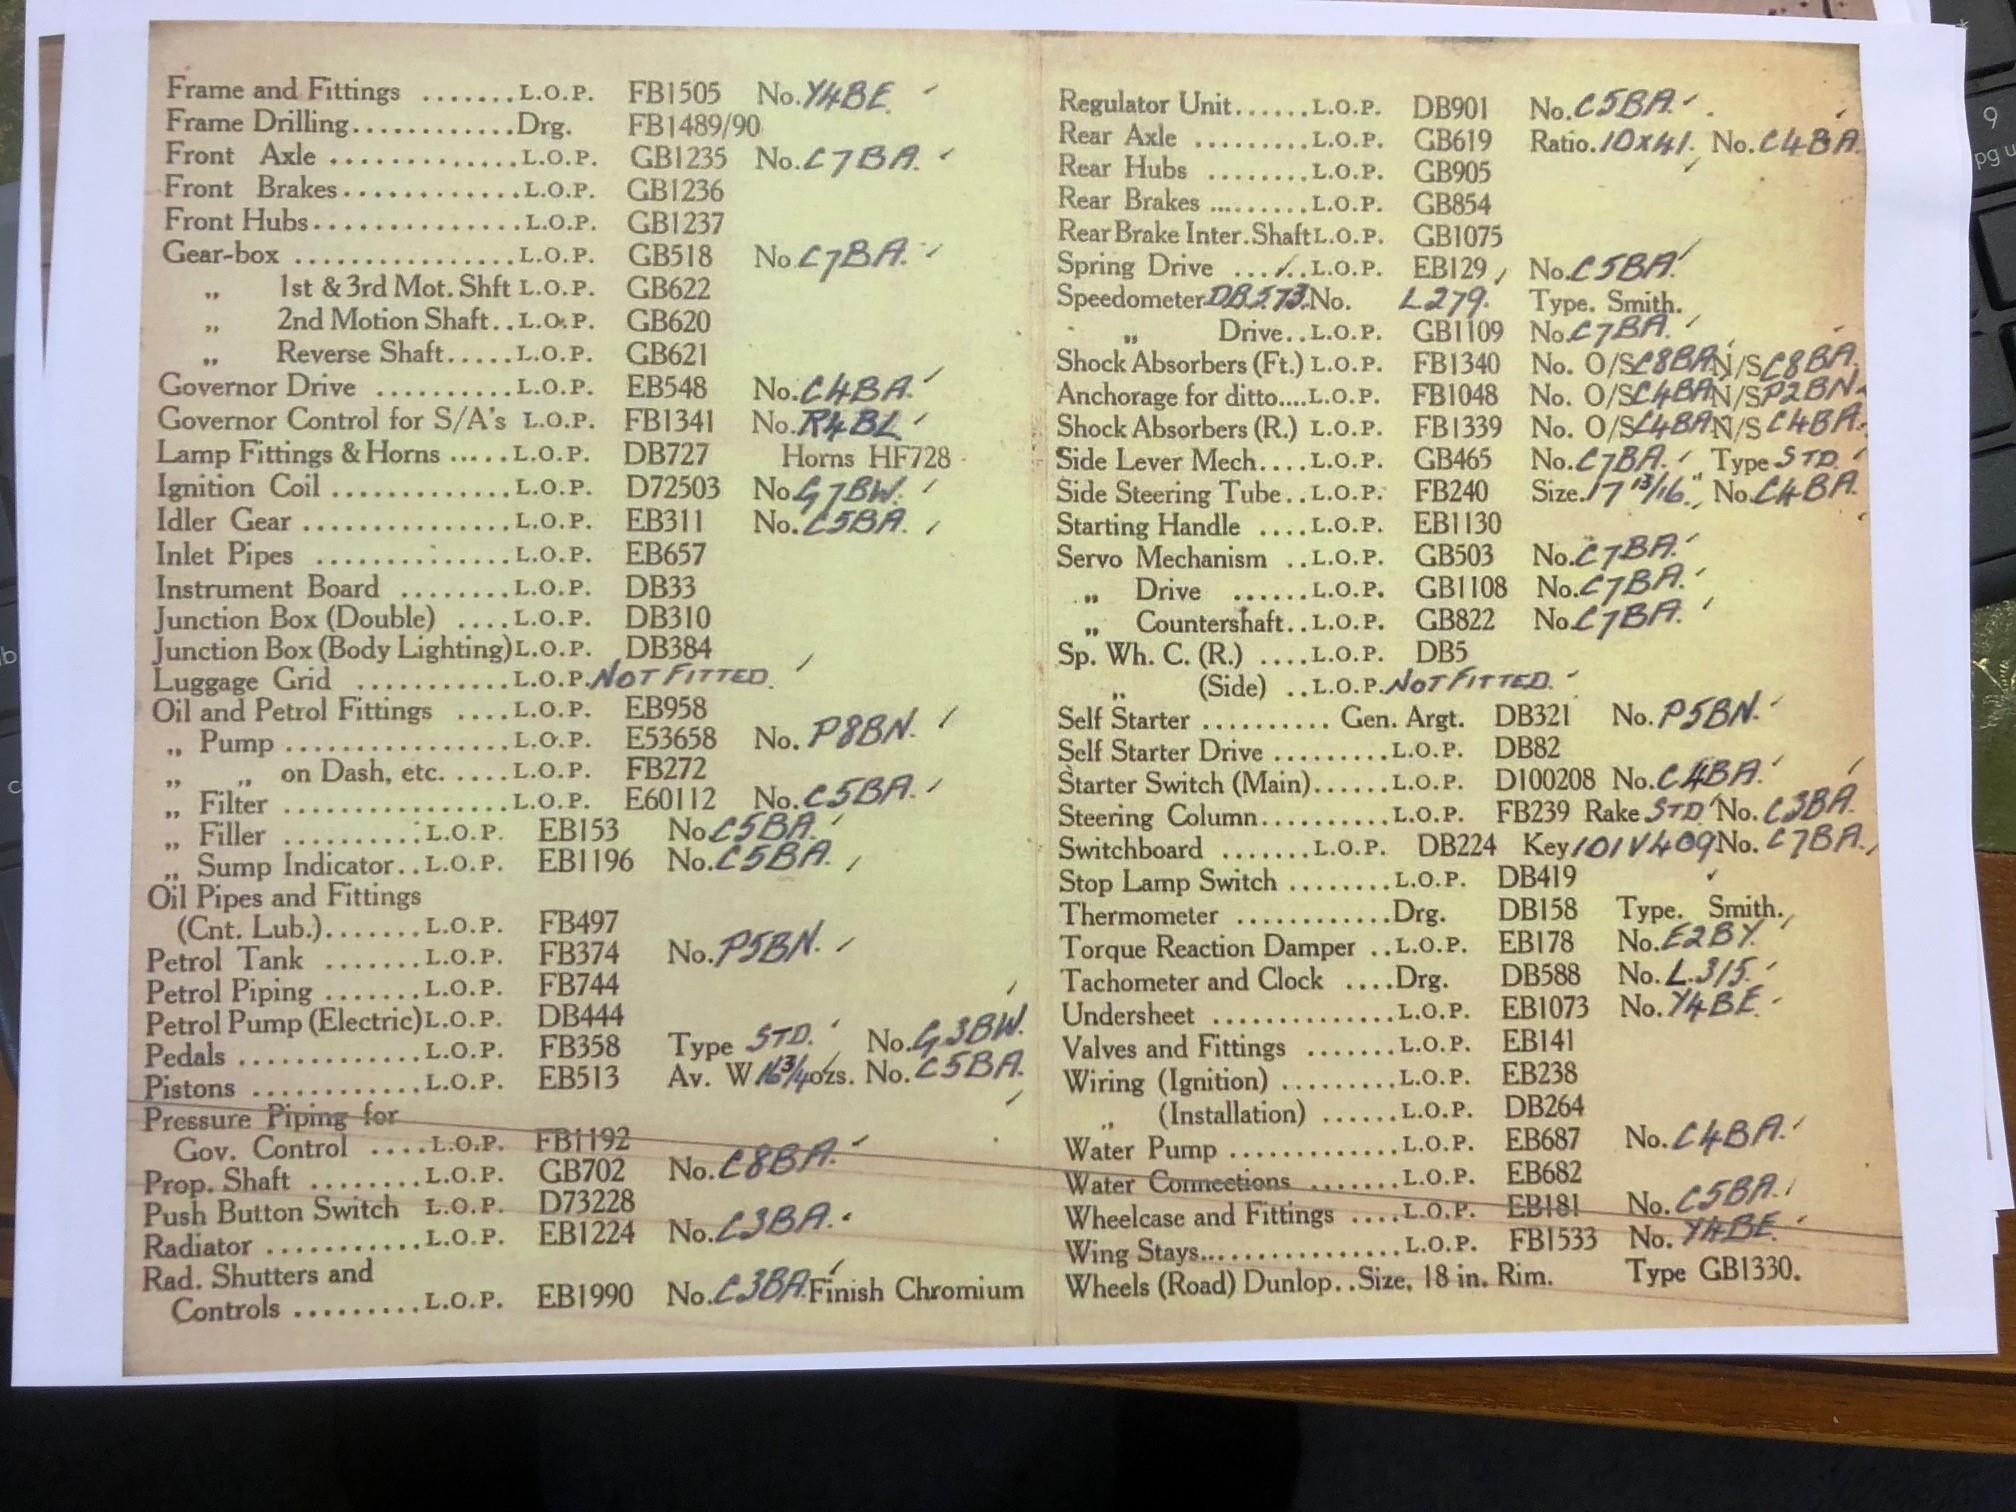 Frame and Fittings .......L.O.P. FB1505 No. Y4BE.
Frame Drilling............Drg. FB1489/90
Front Axle ..............L.O.P. GB1235 No. C7BA.
Front Brakes.............L.O.P. GB1236
Front Hubs...............L.O.P. GB1237
Gear-box .................L.O.P. GB518 No. C7BA.
„ 1st & 3rd Mot. Shft L.O.P. GB622
„ 2nd Motion Shaft..L.O.P. GB620
„ Reverse Shaft.....L.O.P. GB621
Governor Drive ..........L.O.P. EB548 No. C4BA.
Governor Control for S/A's L.O.P. FB1341 No. R4BL
Lamp Fittings & Horns .....L.O.P. DB727 Horns HF728
Ignition Coil .............L.O.P. D72503 No. G7BW.
Idler Gear ................L.O.P. EB311 No. C5BA.
Inlet Pipes ..............L.O.P. EB657
Instrument Board ........L.O.P. DB33
Junction Box (Double) ....L.O.P. DB310
Junction Box (Body Lighting) L.O.P. DB384
Luggage Grid ...........L.O.P. NOT FITTED.
Oil and Petrol Fittings ....L.O.P. EB958
„ Pump .................L.O.P. E53658 No. P8BN.
„ „ on Dash, etc. .....L.O.P. FB272
„ Filter .................L.O.P. E60112 No. C5BA.
„ Filler ..........L.O.P. EB153 No. C5BA.
„ Sump Indicator..L.O.P. EB1196 No. C5BA.
Oil Pipes and Fittings
(Cnt. Lub.).......L.O.P. FB497
Petrol Tank .......L.O.P. FB374 No. P5BN.
Petrol Piping .......L.O.P. FB744
Petrol Pump (Electric) L.O.P. DB444
Pedals .............L.O.P. FB358 Type STD. No. G3BW.
Pistons ............L.O.P. EB513 Av. W 16 3/4 ozs. No. C5BA.
Pressure Piping for
Gov. Control ....L.O.P. FB1192
Prop. Shaft ........L.O.P. GB702 No. C8BA.
Push Button Switch L.O.P. D73228
Radiator ...........L.O.P. EB1224 No. C3BA.
Rad. Shutters and
Controls .........L.O.P. EB1990 No. C3BA. Finish Chromium
Regulator Unit......L.O.P. DB901 No. C5BA.
Rear Axle .........L.O.P. GB619 Ratio. 10x41. No. C4BA.
Rear Hubs ........L.O.P. GB905
Rear Brakes .........L.O.P. GB854
Rear Brake Inter. Shaft L.O.P. GB1075
Spring Drive ......L.O.P. EB129 No. C5BA.
Speedometer DB573. No. L279. Type. Smith.
„ Drive..L.O.P. GB1109 No. C7BA.
Shock Absorbers (Ft.) L.O.P. FB1340 No. O/S C8BA N/S C8BA.
Anchorage for ditto....L.O.P. FB1048 No. O/S C4BA N/S P2BN.
Shock Absorbers (R.) L.O.P. FB1339 No. O/S C4BA N/S C4BA.
Side Lever Mech....L.O.P. GB465 No. C7BA. Type STD.
Side Steering Tube..L.O.P. FB240 Size. 17 13/16." No. C4BA.
Starting Handle ....L.O.P. EB1130
Servo Mechanism ..L.O.P. GB503 No. C7BA.
„ Drive ......L.O.P. GB1108 No. C7BA.
„ Countershaft..L.O.P. GB822 No. C7BA.
Sp. Wh. C. (R.) ....L.O.P. DB5
„ (Side) ..L.O.P. NOT FITTED.
Self Starter ..........Gen. Argt. DB321 No. P5BN.
Self Starter Drive .........L.O.P. DB82
Starter Switch (Main)......L.O.P. D100208 No. C4BA.
Steering Column..........L.O.P. FB239 Rake STD. No. C3BA.
Switchboard .......L.O.P. DB224 Key 101V409 No. C7BA.
Stop Lamp Switch ........L.O.P. DB419
Thermometer ............Drg. DB158 Type. Smith.
Torque Reaction Damper ..L.O.P. EB178 No. E2BY.
Tachometer and Clock ....Drg. DB588 No. L.315.
Undersheet ..............L.O.P. EB1073 No. Y4BE.
Valves and Fittings .......L.O.P. EB141
Wiring (Ignition) .........L.O.P. EB238
„ (Installation) ......L.O.P. DB264
Water Pump .............L.O.P. EB687 No. C4BA.
Water Connections .......L.O.P. EB682
Wheelcase and Fittings ....L.O.P. EB181 No. C5BA.
Wing Stays...............L.O.P. FB1533 No. Y4BE.
Wheels (Road) Dunlop..Size, 18 in. Rim. Type GB1330.
9
pg u